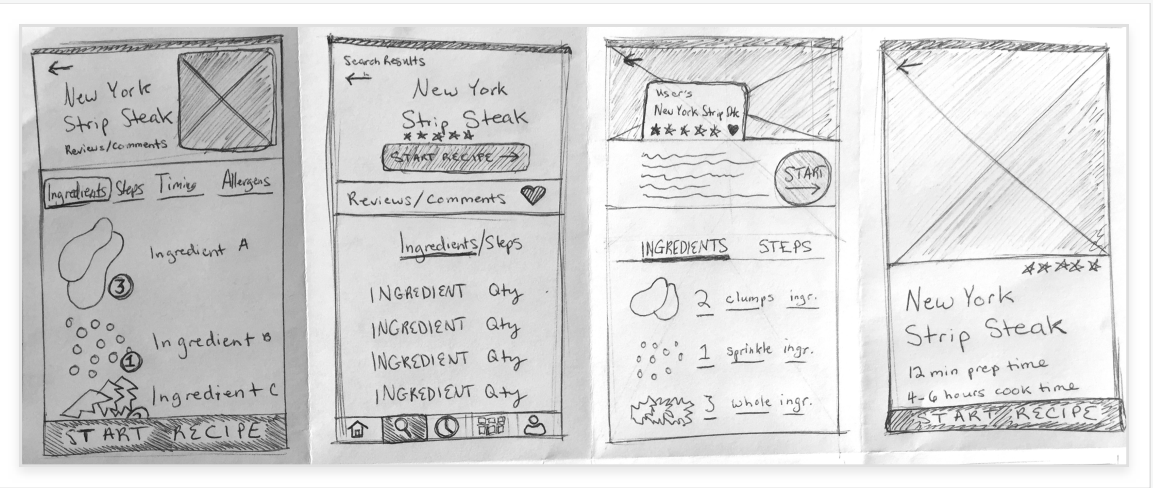 ←
New York
Strip Steak
Reviews/Comments
Ingredients Steps Timing Allergens
Ingredient A
3
Ingredient B
1
Ingredient C
START RECIPE
Search Results
←
New York
Strip Steak
★★★★★
START RECIPE →
Reviews/Comments ♥
Ingredients/Steps
INGREDIENT Qty
INGREDIENT Qty
INGREDIENT Qty
INGREDIENT Qty
←
User's
New York Strip Stk
★★★★★ ♥
START
→
INGREDIENTS STEPS
2 clumps ingr.
1 sprinkle ingr.
3 whole ingr.
←
★★★★★
New York
Strip Steak
12 min prep time
4-6 hours cook time
START RECIPE